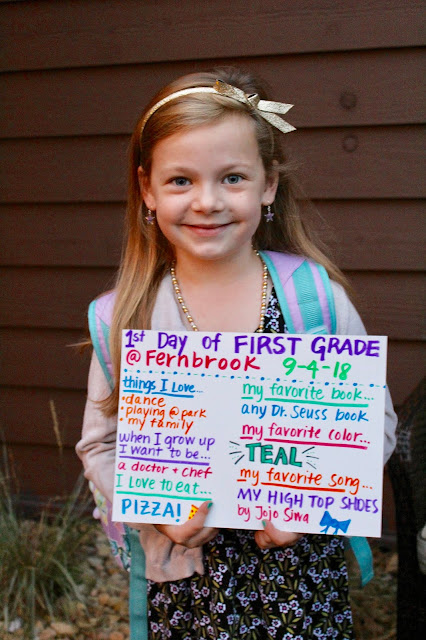 1st Day of FIRST GRADE
@ Fernbrook 9-4-18
things I Love...
• dance
• playing @ park
• my family
when I grow up
I want to be...
a doctor + chef
I love to eat...
PIZZA!
my favorite book...
any Dr. Seuss book
my favorite color...
TEAL
my favorite song...
MY HIGH TOP SHOES
by Jojo Siwa